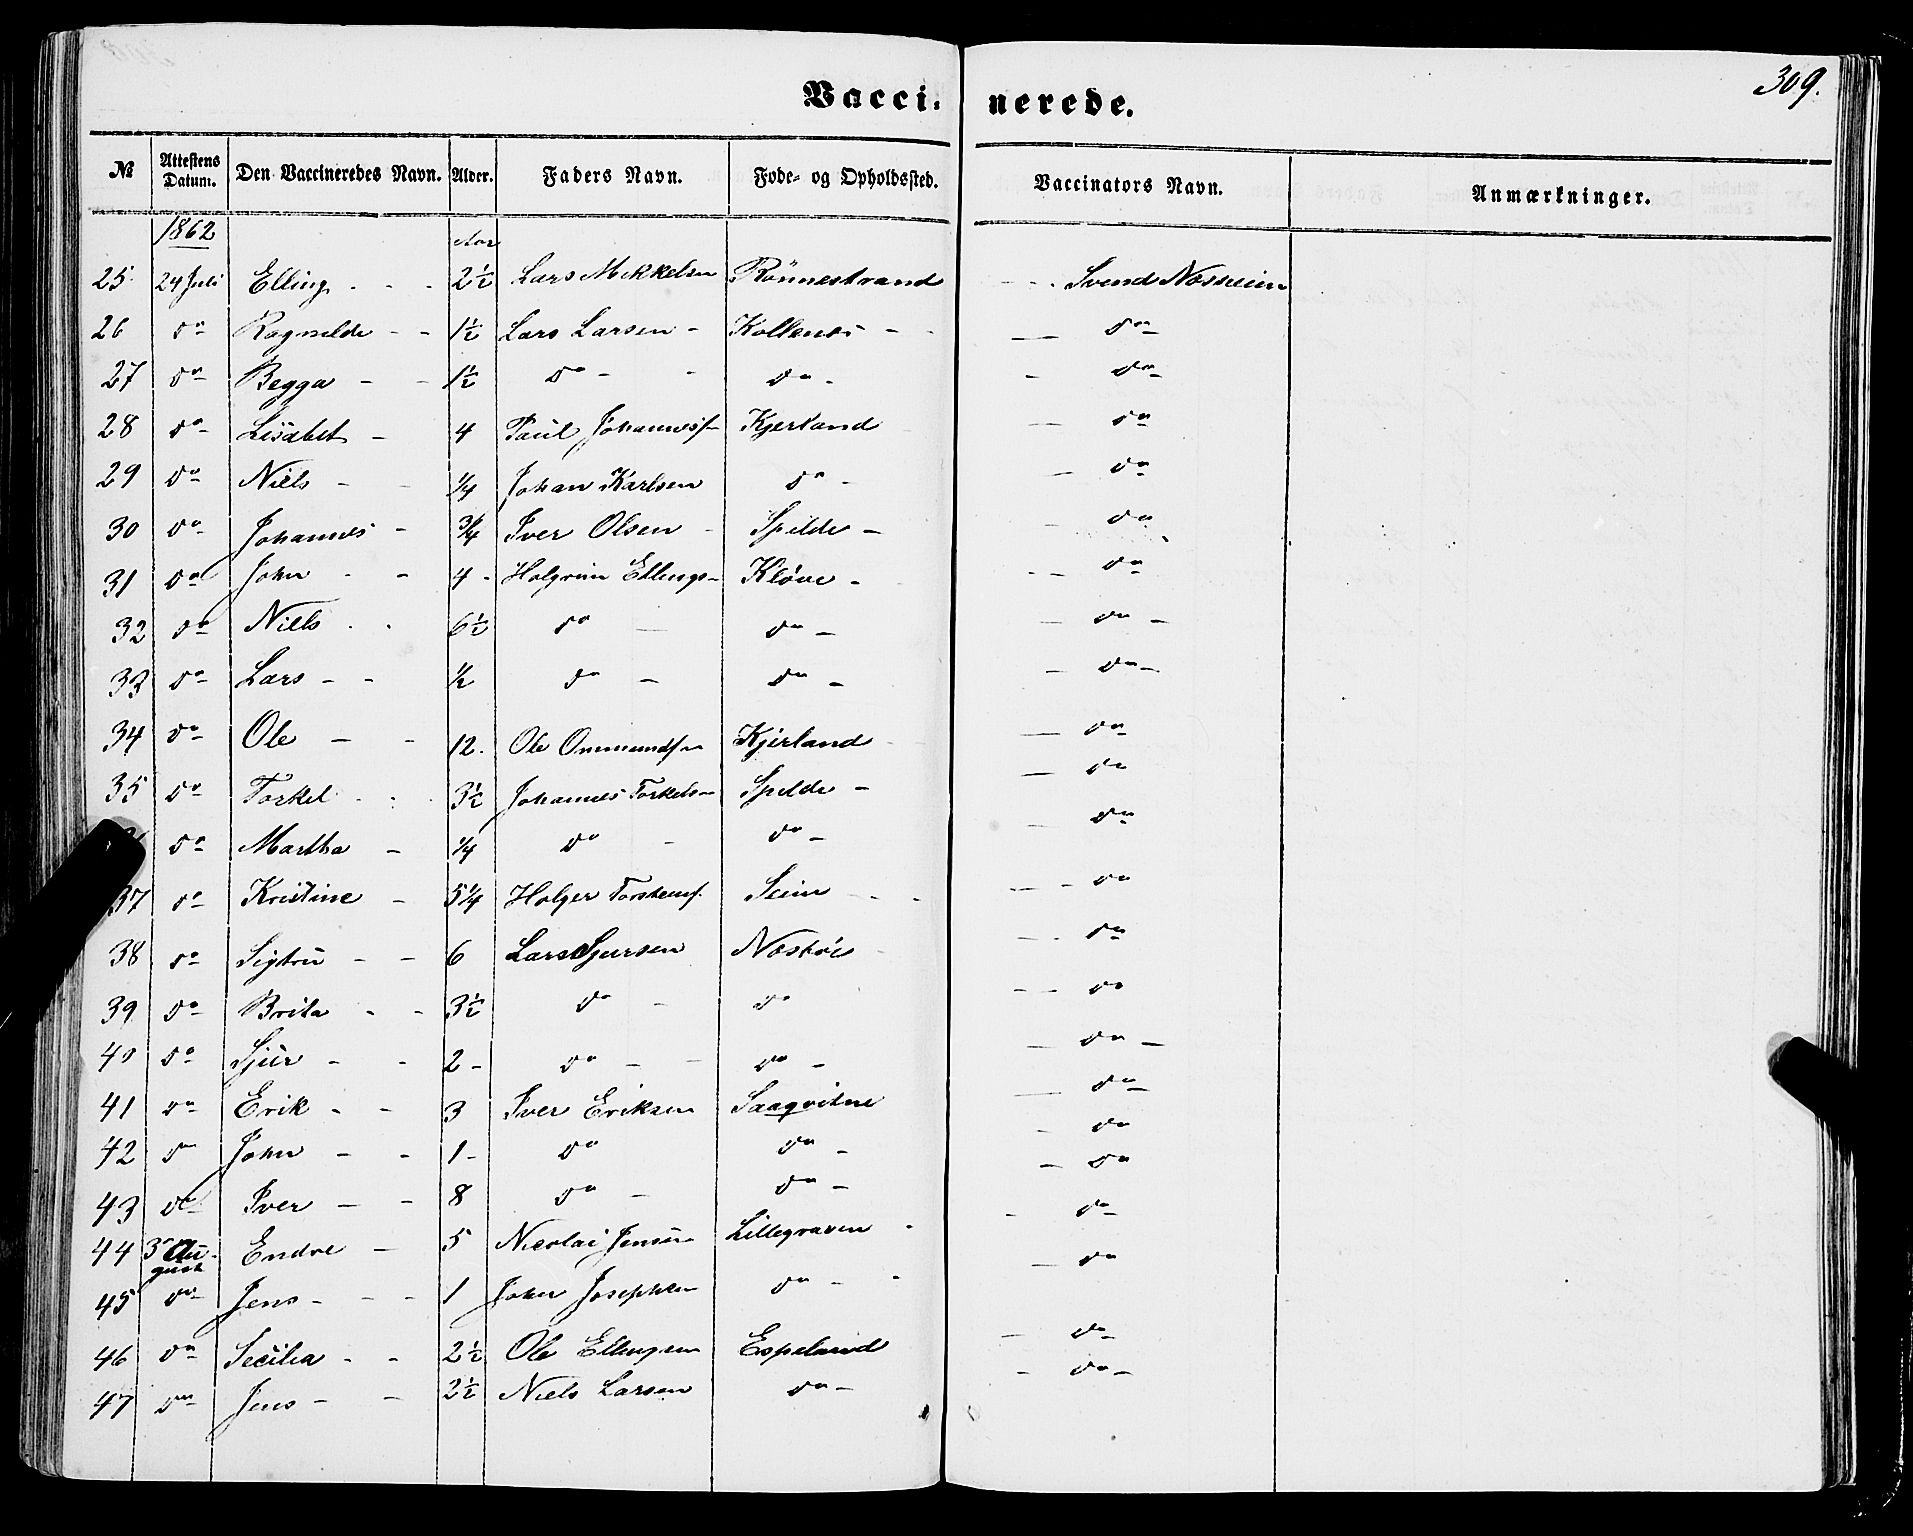 309.
Vacci- nerede.
№ Attestens Datum. Den Vaccineredes Navn. Alder. Faders Navn. Føde- og Opholdssted. Vaccinators Navn. Anmærkninger.
1862 Aar
25 24 Juli Elling - - - 2½ Lars Mikkelsen Rönnestrand - - - Svend Nosseim
26 do Ragnilde - - 1½ Lars Larsen - Kollenes - - — do
27 do Begga - - 1½ do - - do - - do
28 do Lisabet - 4 Paul Johannesn Kjerland — do
29 do Niels - - ¼ Johan Karlsen do - — do
30 do Johannes - ¾ Iver Olsen - Spilde - - do
31 do John - - 4 - Holgrim Ellings- Klöve - - - do
32 do Niels - - 6½ do — do - — do -
33 do Lars - - ½ do - do - - do -
34 do Ole - - 12. Ole Ommundsn Kjerland — do
35 do Torkel - - 3½ Johannes Torkels- Spilde - — do
do Martha - ¼ do - do - - do
37 do Kristine - 5¼ Holger Torstens. Seim - - — - do
38 do Sigtru - - 6 Lars Sjursen Nostöe - - - do
39 do Brita - - 3½ do - do - - do
40 do Sjur - - 2 - do - - do - — do -
41 do Erik - - 3 Iver Eriksen Saaqvitne — do
42 do John - - 1 - do do - - do
43 do Iver - - 8 do - do - - do
44 3 August Endre - 5 Nicolai Jensen Lillegraven - - do
45 do Jens - - - 1 John Josephsen do - - — do
46 do Secilia - - 2½ Ole Ellingsen Espeland — do
47 do Jens - - 2½ Niels Larsen do - - do -